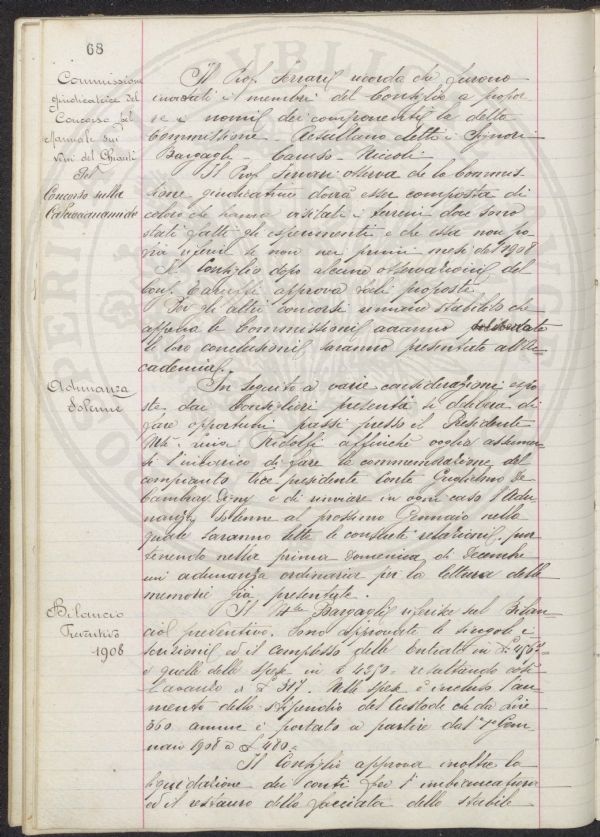 68
Commissione
giudicatrice del
Concorso pel
Manuale sui
Vini del Chianti
Pel
Concorso sulla
Calciocianamide
Il Prof. Ferrari ricorda che furono
invitati i membri del Consiglio a propor
re i nomi dei componenti la detta
Commissione. Resultano eletti i Signori
Bargagli - Caruso - Niccoli.
Il Prof. Ferrari osserva che la Commis
sione giudicatrice dovrà esser composta di
coloro che hanno visitati i terreni dove sono
stati fatti gli esperimenti e che essa non po
trà riferire se non nei primi mesi del 1908
Il Consiglio dopo alcune osservazioni del
Con. approva tali proposte.
Per gli altri concorsi rimane stabilito che
appena le Commissioni avranno
le loro conclusioni saranno presentate all'Ac
cademia.
Adunanza
Solenne
In seguito a varie considerazioni espo
ste dai Consiglieri presenti si delibera di
fare opportuni passi presso il Presidente
Mse Luigi Ridolfi affinchè voglia assumer
si l'incarico di fare la commemorazione del
compianto Vice presidente Conte Guglielmo de
Cambray Digny e di rinviare in ogni caso l'Adu
nanza solenne al prossimo Gennaio nella
quale saranno lette le consuete relazioni, pur
tenendo nella prima Domenica di Decembre
una adunanza ordinaria per la lettura delle
memorie già presentate.
Bilancio
Preventivo
1908
Il Mse Bargagli riferisce sul Bilan
cio preventivo. Sono approvate le singole i
scrizioni ed il complesso delle entrate in £
e quello delle spese in £ 4250 resultando così
l'avanzo di £ 317. Nelle spese è incluso l'au
mento dello stipendio del Custode che da Lire
360 annue è portato a partire dal 1º Gen
naio 1908 a £ 480.
Il Consiglio approva inoltre la
liquidazione dei conti per l'imbiancatura
ed il restauro della facciata dello stabile